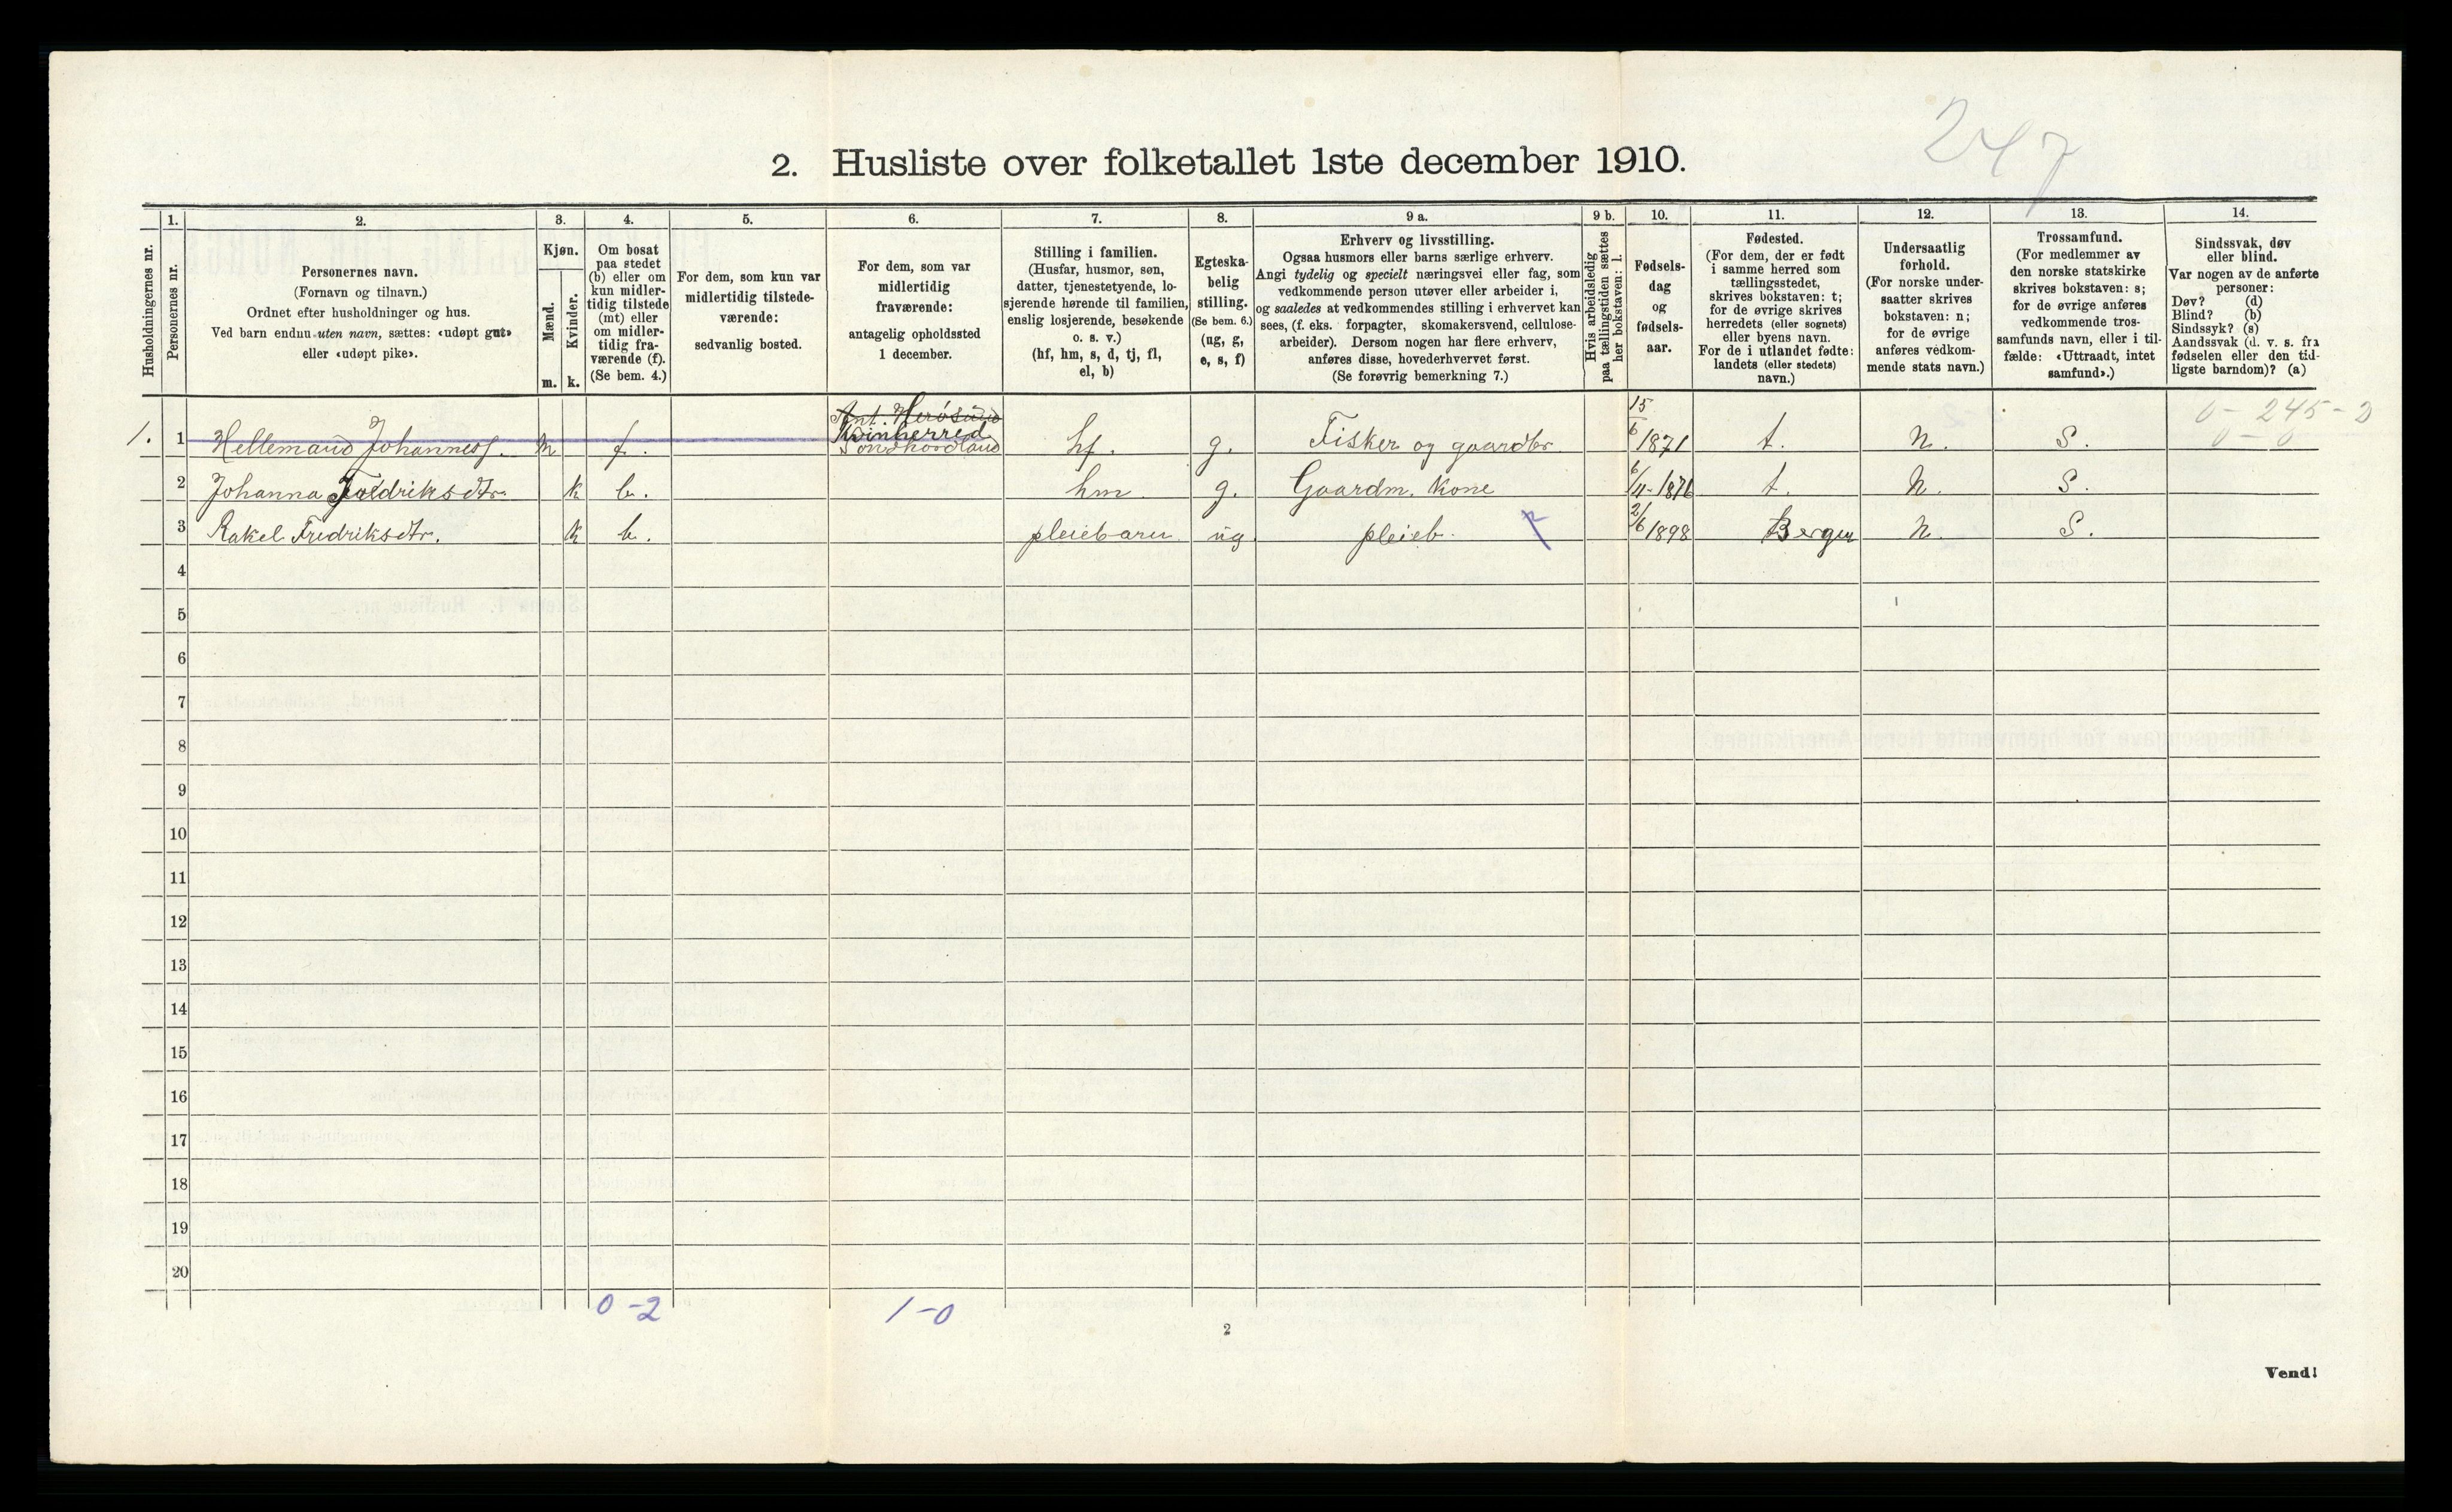 247
2. Husliste over folketallet 1ste december 1910.
Husholdningernes nr.
1. Personernes nr.
2.
Personernes navn.
(Fornavn og tilnavn.)
Ordnet efter husholdninger og hus.
Ved barn endnu uten navn, sættes: «udøpt gut»
eller «udøpt pike».
3.
Kjøn.
Mænd. m.
Kvinder. k.
4.
Om bosat
paa stedet
(b) eller om
kun midler-
tidig tilstede
(mt) eller
om midler-
tidig fra-
værende (f).
(Se bem. 4.)
5.
For dem, som kun var
midlertidig tilstede-
værende:
sedvanlig bosted.
6.
For dem, som var
midlertidig
fraværende:
antagelig opholdssted
1 december.
7.
Stilling i familien.
(Husfar, husmor, søn,
datter, tjenestetyende, lo-
sjerende hørende til familien,
enslig losjerende, besøkende
o. s. v.)
(hf, hm, s, d, tj, fl,
el, b)
8.
Egteska-
belig
stilling.
(Se bem. 6.)
(ug, g,
e, s, f)
9 a.
Erhverv og livsstilling.
Ogsaa husmors eller barns særlige erhverv.
Angi tydelig og specielt næringsvei eller fag, som
vedkommende person utøver eller arbeider i,
og saaledes at vedkommendes stilling i erhvervet kan
sees, (f. eks. forpagter, skomakersvend, cellulose-
arbeider). Dersom nogen har flere erhverv,
anføres disse, hovederhvervet først.
(Se forøvrig bemerkning 7.)
9 b.
Hvis arbeidsledig
paa tællingstiden sættes
her bokstaven: l.
10.
Fødsels-
dag
og
fødsels-
aar.
11.
Fødested.
(For dem, der er født
i samme herred som
tællingsstedet,
skrives bokstaven: t;
for de øvrige skrives
herredets (eller sognets)
eller byens navn.
For de i utlandet fødte:
landets (eller stedets)
navn.)
12.
Undersaatlig
forhold.
(For norske under-
saatter skrives
bokstaven: n;
for de øvrige
anføres vedkom-
mende stats navn.)
13.
Trossamfund.
(For medlemmer av
den norske statskirke
skrives bokstaven: s;
for de øvrige anføres
vedkommende tros-
samfunds navn, eller i til-
fælde: «Uttraadt, intet
samfund».)
14.
Sindssvak, døv
eller blind.
Var nogen av de anførte
personer:
Døv? (d)
Blind? (b)
Sindssyk? (s)
Aandssvak (d. v. s. fra
fødselen eller den tid-
ligste barndom)? (a)
0 - 245 - 2
0 - 0
1. 1 Hellemand Johanness. m f. Ant. Herøsund Kvinherred Søndhordland hf. g. Fisker og gaardbr. 15/6 1871 t. n. S.
2 Johanna Fredriksdtr. k b. hm g. Gaardm. kone 6/11-1876 t. n. S.
3 Rakel Fredriksdtr. k b. pleiebarn ug pleieb. 2/6 1898 Bergen n. S.
4
5
6
7
8
9
10
11
12
13
14
15
16
17
18
19
20
0-2 1-0
2
Vend!